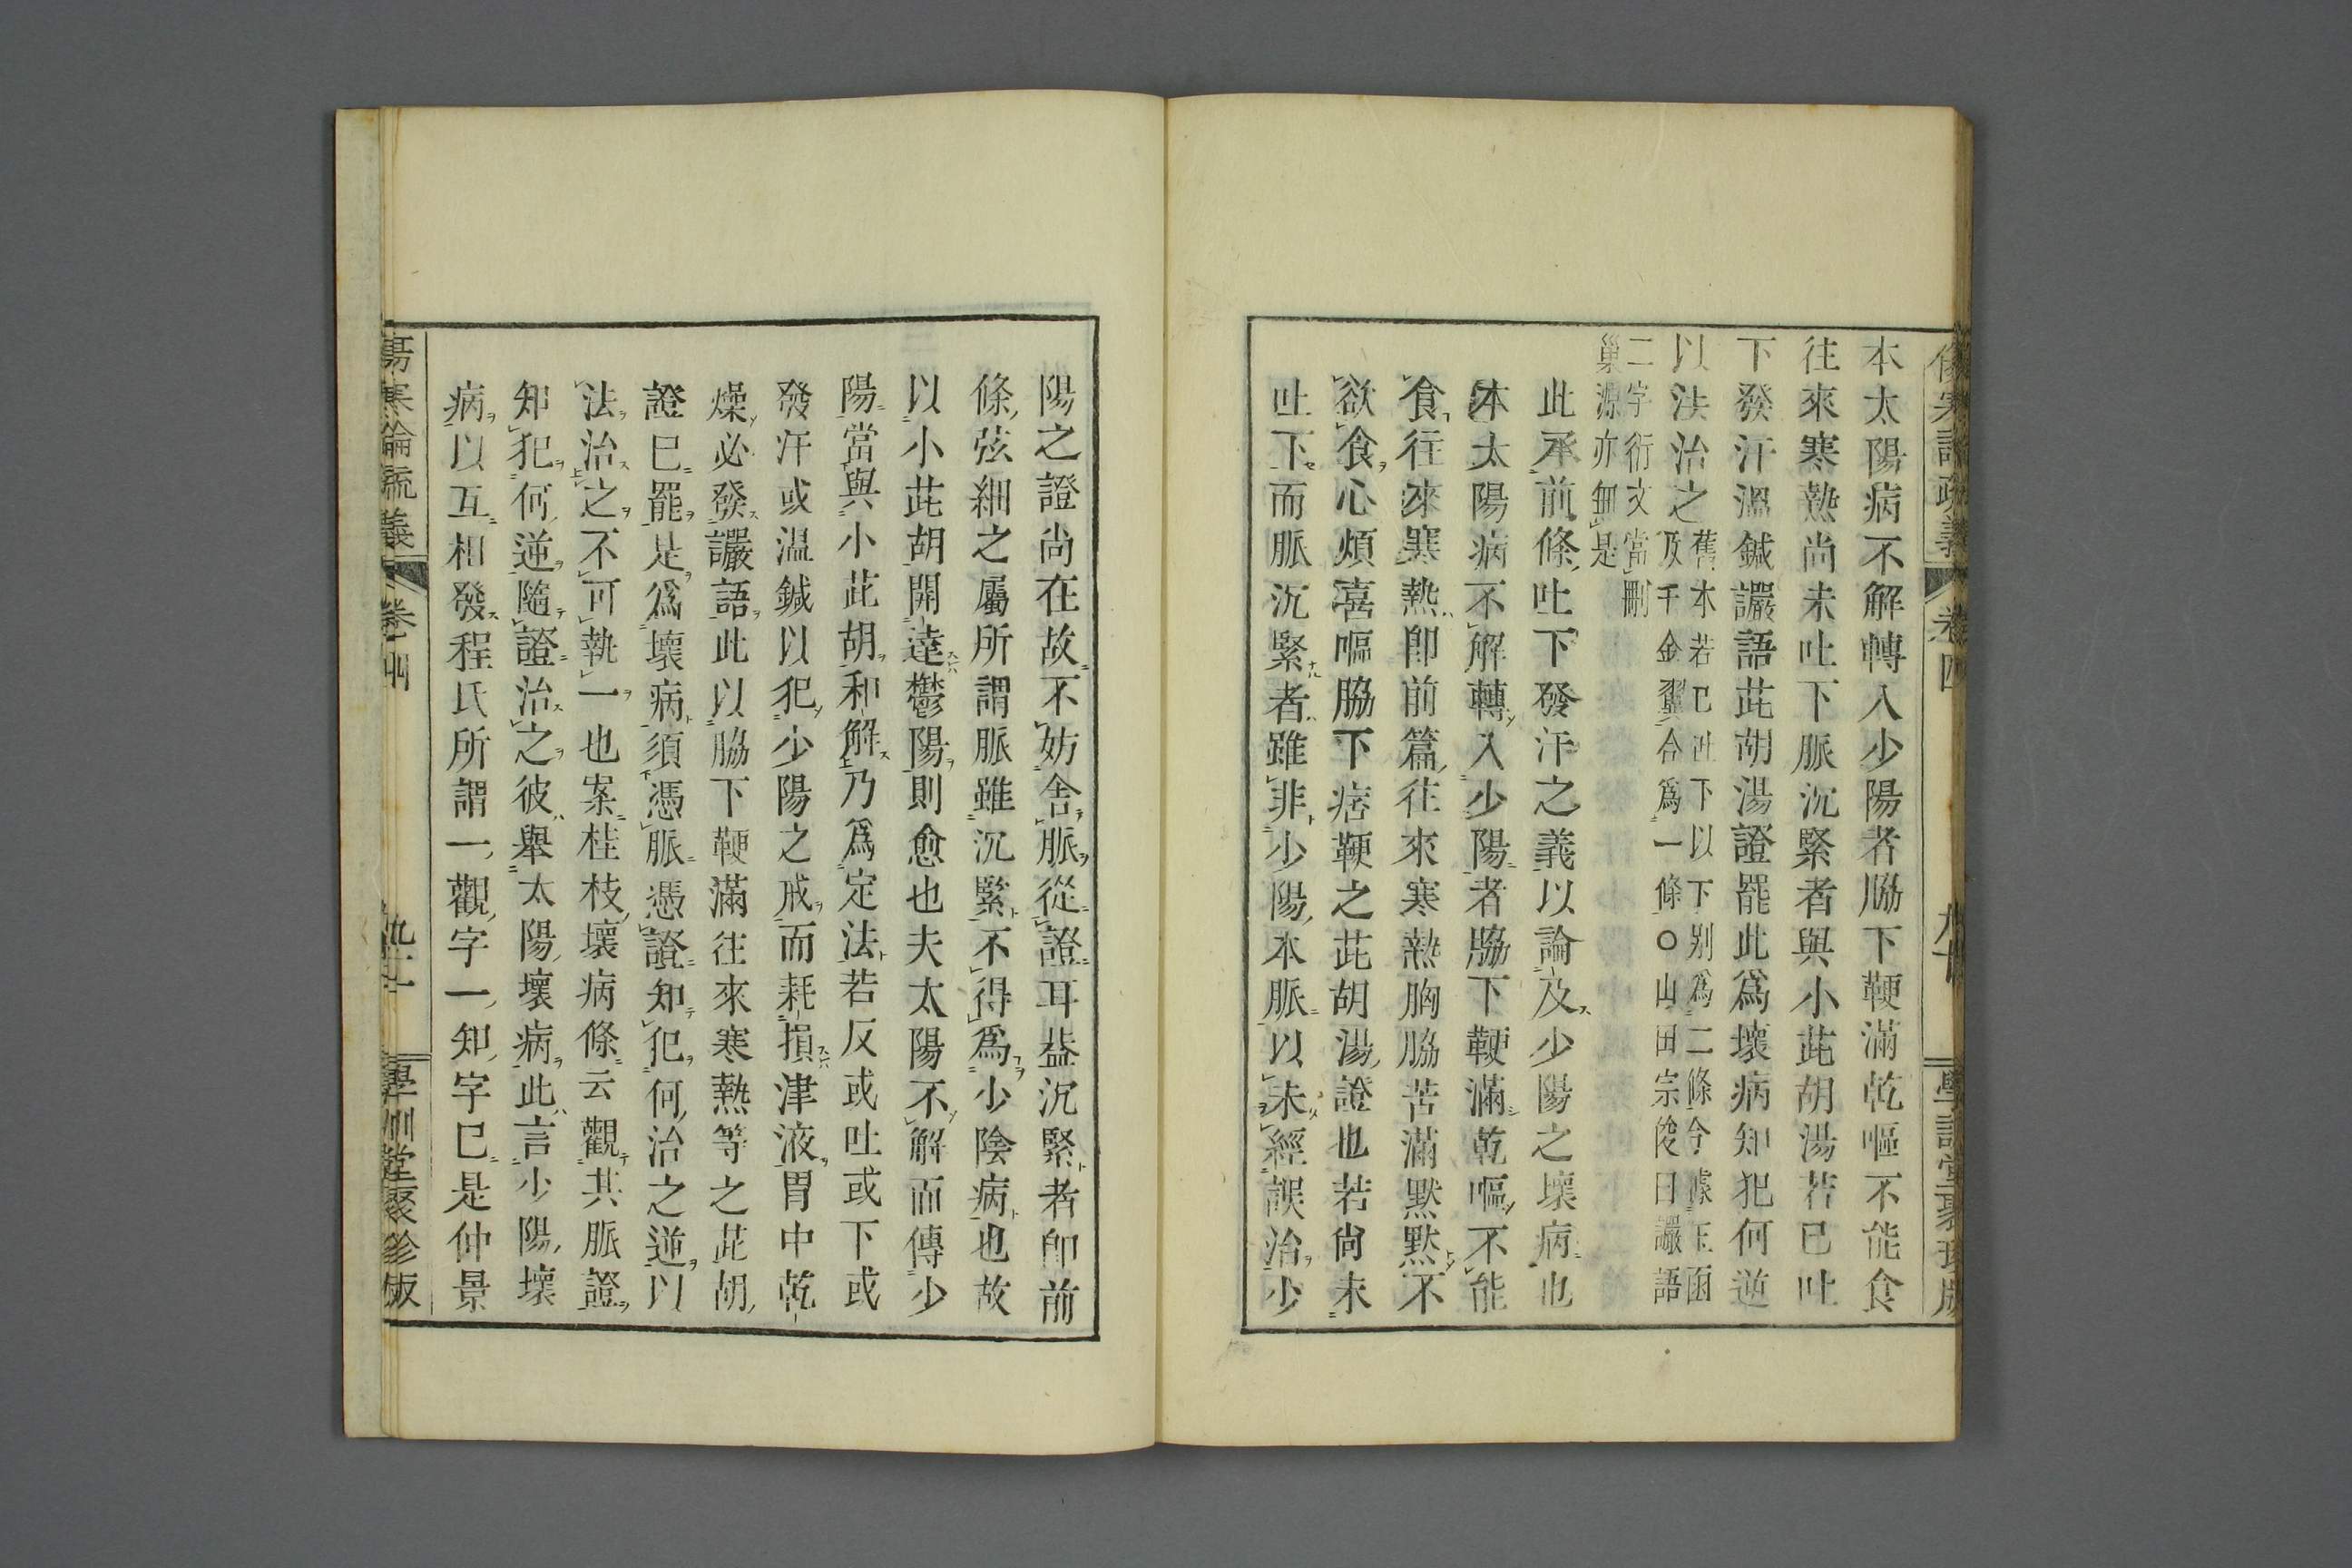 本太陽病不解轉入少陽者脇下鞕滿乾嘔不能食
往來寒熱尚未吐下脈沉緊者與小茈胡湯若已吐
下發汗溫鍼讝語茈胡湯證罷此爲壞病知犯何逆
以法治之
舊本若已吐下以下別爲二條今據玉函
及千金翼合爲一條○山田宗俊曰讝語
二字衍文當刪
巢源亦無是
此承前條吐下發汗之義以論及少陽之壞病也
本太陽病不解轉入少陽者脇下鞕滿乾嘔不能
食往來寒熱卽前篇往來寒熱胸脇苦滿默默不
欲食心煩喜嘔脇下痞鞕之茈胡湯證也若尚未
吐下而脈沉緊者雖非少陽本脈以未經誤治少
陽之證尚在故不妨舍脈從證耳益沉緊者卽前
條弦細之屬所謂脈雖沉緊不得爲少陰病也故
以小茈胡開達鬱陽則愈也夫太陽不解而傳少
陽當與小茈胡和解乃爲定法若反或吐或下或
發汗或温鍼以犯少陽之戒而耗損津液胃中乾
燥必發讝語此以脇下鞕滿往來寒熱等之茈胡
證已罷是爲壞病須憑脈憑證知犯何治之逆以
法治之不可執一也案桂枝壞病條云觀其脈證
知犯何逆隨證治之彼舉太陽壞病此言少陽壞
病以互相發程氏所謂一觀字一知字已是仲景
傷寒論疏義
卷四
學訓堂聚珍版